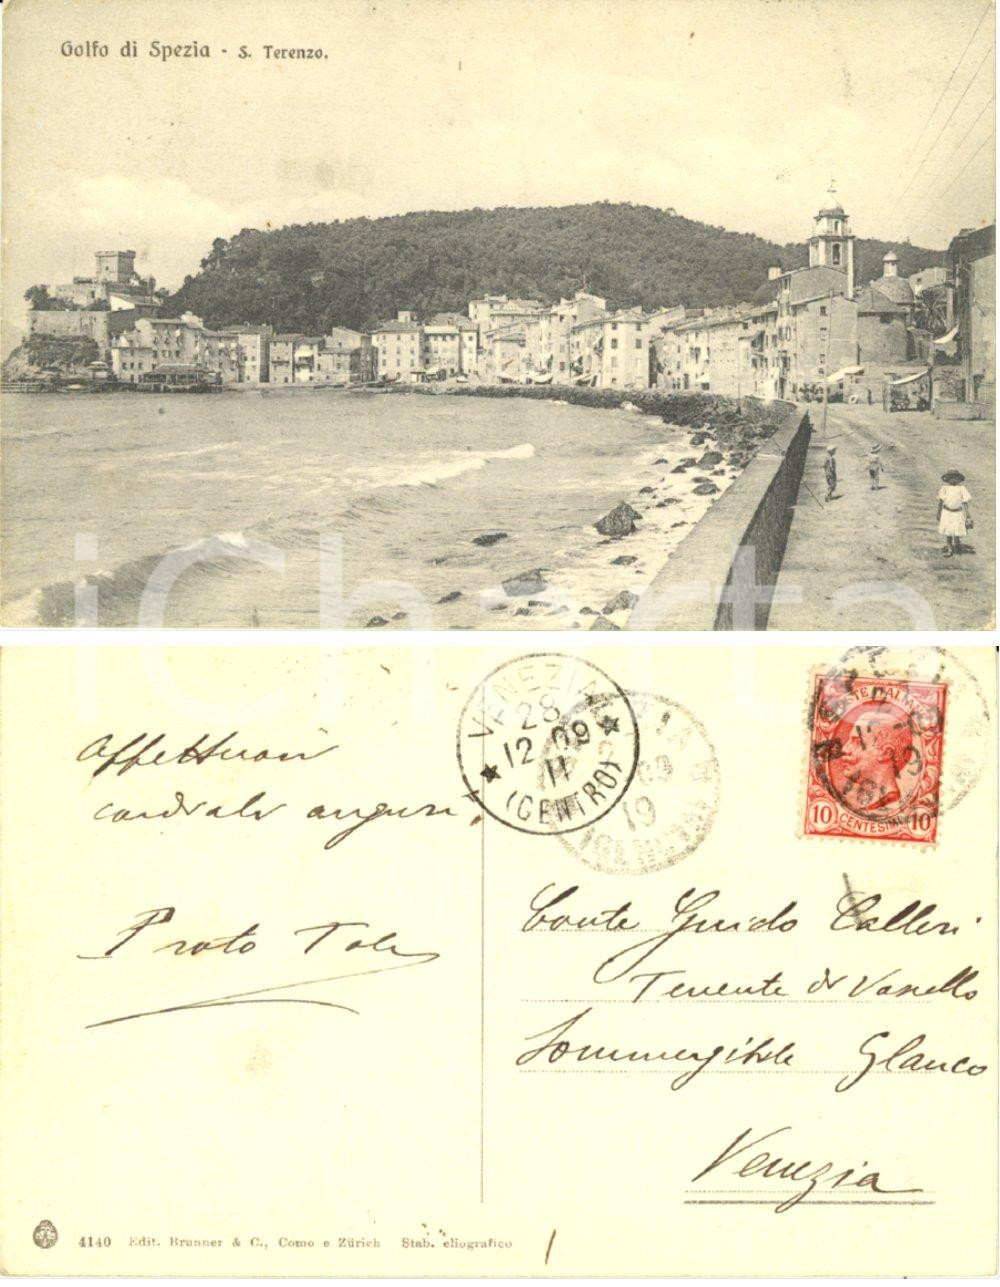 Golfo di Spezia - S. Terenzo.
iCharta
VENEZIA
28
12-09
11
(CENTRO)
09
19
POSTE ITALIANE
10 CENTESIMI 10
19
Affettuosi
cordiali auguri
Prato
Conte Guido Calleri
Tenente di Vascello
Sommergibile Glauco
Venezia
4140 Edit. Brunner & C., Como e Zürich Stab. eliografico